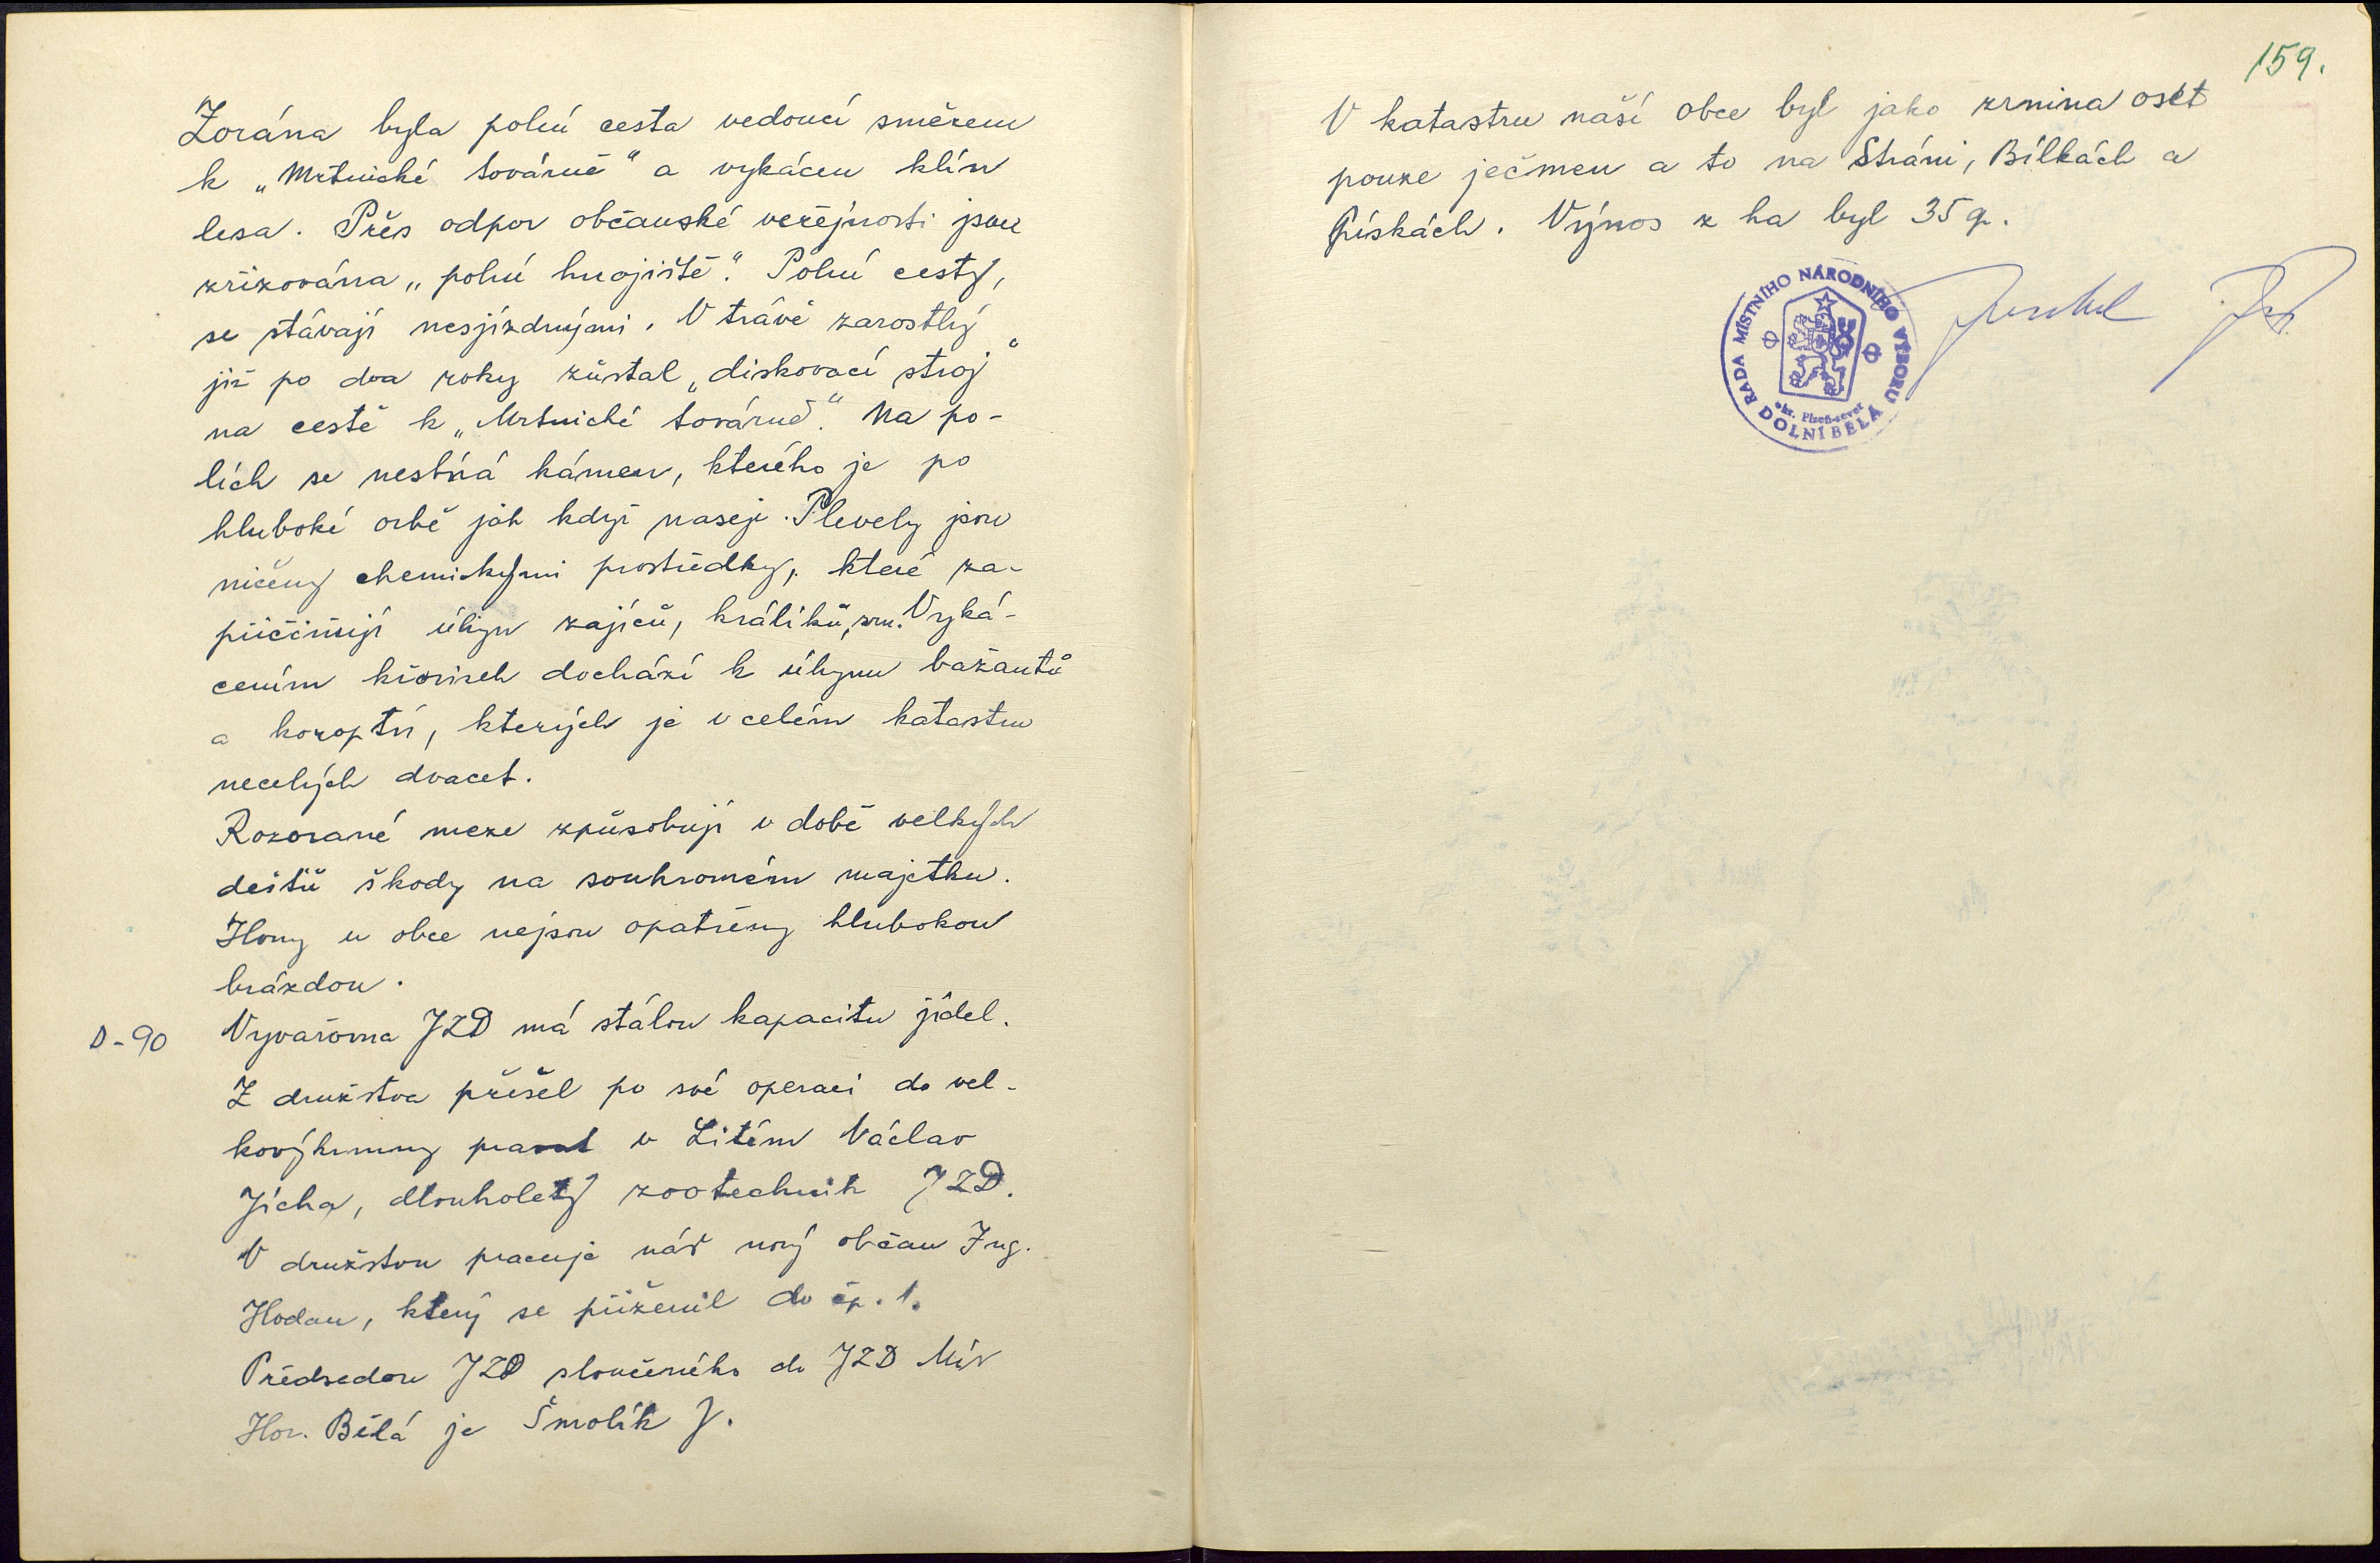 Zorána byla polní cesta vedoucí směrem
k „Mrtnické továrně“ a vykácen klín
lesa. Přes odpor občanské veřejnosti jsou
zřizována „polní hnojiště“. Polní cesty,
se stávají nesjízdnými. V trávě zarostlý
již po dva roky zůstal „diskovací stroj“
na cestě k „Mrtnické továrně“. Na po-
lích se nesbírá kámen, kterého je po
hluboké orbě jak když naseje. Plevely jsou
ničeny chemickými prostředky, které za-
příčiňují úhyn zajíců, králíků, srn. Vyká-
cením křovisek dochází k úhynu bažantů
a koroptví, kterých je v celém katastru
necelých dvacet.
Rozorané meze způsobují v době velkých
dešťů škody na soukromém majetku.
Hony u obce nejsou opatřeny hlubokou
brázdou.
D-90
Vyvařovna JZD má stálou kapacitu jídel.
Z družstva přešel po své operaci do vel-
kovýkrmny prasat v Litém Václav
Jícha, dlouholetý zootechnik JZD.
V družstvu pracuje náš nový občan Ing.
Hodan, který se přiženil do čp. 1.
Předsedou JZD sloučeného do JZD Mír
Hor. Bělá je Šmolík J.
159.
V katastru naší obce byl jako zrnina oset
pouze ječmen a to na Stráni, Bílkách a
Pískách. Výnos z ha byl 35 q.
RADA MÍSTNÍHO NÁRODNÍHO VÝBORU
okr. Plzeň-sever
DOLNÍ BĚLÁ